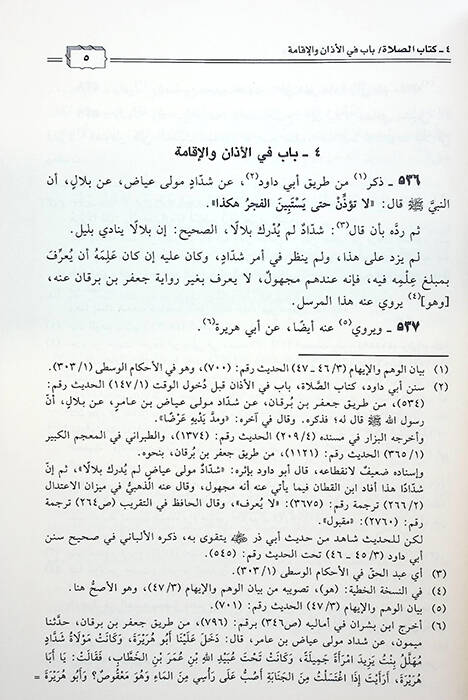 ٤ ـ كتاب الصلاة/ باب في الأذان والإقامة
٥
٤ ـ باب في الأذان والإقامة
٥٣٦ ـ ذكر(١) من طريق أبي داود(٢)، عن شدّادٍ مولى عياض، عن بلالٍ، أن
النبيَّ ﷺ قال: «لا تؤذِّنْ حتى يَسْتَبِينَ الفجرُ هكذا».
ثم ردَّه بأن قال(٣): شدّادٌ لم يُدْرك بلالًا، الصحيح: إن بلالًا ينادي بليل.
لم يزد على هذا، ولم ينظر في أمر شدّادٍ، وكان عليه إن كان عَلِمَهُ أن يُعرِّفَ
بمبلغ عِلْمِه فيه، فإنه عندهم مجهولٌ، لا يعرف بغير رواية جعفر بن برقان عنه،
[وهو](٤) يروي عنه هذا المرسل.
٥٣٧ ـ ويروي(٥) عنه أيضًا، عن أبي هريرة(٦).
(١) بيان الوهم والإيهام (٣/ ٤٦ ـ ٤٧) الحديث رقم: (٧٠٠)، وهو في الأحكام الوسطى (١/ ٣٠٣).
(٢) سنن أبي داود، كتاب الصَّلاة، باب في الأذان قبل دُخول الوقت (١/ ١٤٧) الحديث رقم:
(٥٣٤)، من طريق جعفر بن بُرقان، عن شدّاد مولى عياض بن عامرٍ، عن بلالٍ، أنَّ
رسول الله ﷺ قال له؛ فذكره. وقال في آخره: «ومدَّ يَدَيْهِ عَرْضًا».
وأخرجه البزار في مسنده (٤/ ٢٠٩) الحديث رقم: (١٣٧٤)، والطبراني في المعجم الكبير
(١/ ٣٦٥) الحديث رقم: (١١٢١)، من طريق جعفر بن بُرقان، بنحوه.
وإسناده ضعيفٌ لانقطاعه، قال أبو داود بإثره: «شدّادٌ مولى عياضٍ لم يُدرك بلالًا»، ثم إنّ
شدّادًا هذا أفاد ابن القطان فيما يأتي عنه أنه مجهول، وقال عنه الذهبيُّ في ميزان الاعتدال
(٢/ ٢٦٦) ترجمة رقم: (٣٦٧٥): «لا يُعرف»، وقال الحافظ في التقريب (ص٢٦٤) ترجمة
رقم: (٢٧٦٠): «مقبول».
لكن للحديث شاهد من حديث أبي ذر ﵁ يتقوى به، ذكره الألباني في صحيح سنن
أبي داود (٣/ ٤٥ ـ ٤٦) تحت الحديث رقم: (٥٤٥).
(٣) أي عبد الحقّ في الأحكام الوسطى (١/ ٣٠٣).
(٤) في النسخة الخطية: (هو)، تصويبه من بيان الوهم والإيهام (٣/ ٤٧)، وهو الأصحُّ هنا.
(٥) بيان الوهم والإيهام (٣/ ٤٧) الحديث رقم: (٧٠١).
(٦) أخرج ابن بشران في أماليه (ص٣٤٦) برقم: (٧٩٦)، من طريق جعفر بن برقان، حدَّثنا
ميمون، عن شداد مولى عياض بن عامر، قال: دَخَلَ عَلَيْنَا أَبُو هُرَيْرَةَ، وَكَانَتْ مَوْلَاةُ شَدَّادٍ
مُهَلَّلُ بِنْتُ يَزِيدَ امْرَأَةً جَمِيلَةً، وَكَانَتْ تَحْتَ عُبَيْدِ اللهِ بْنِ عُمَرَ بْنِ الخَطَّابِ، فَقَالَتْ: يَا أَبَا
هُرَيْرَةَ، أَرَأَيْتَ إِذَا اغْتَسَلْتُ مِنَ الجَنَابَةِ أَصُبُّ عَلَى رَأْسِي مِنَ المَاءِ وَهُوَ مَعْقُوصٌ؟ وَأَبُو هُرَيْرَةَ =